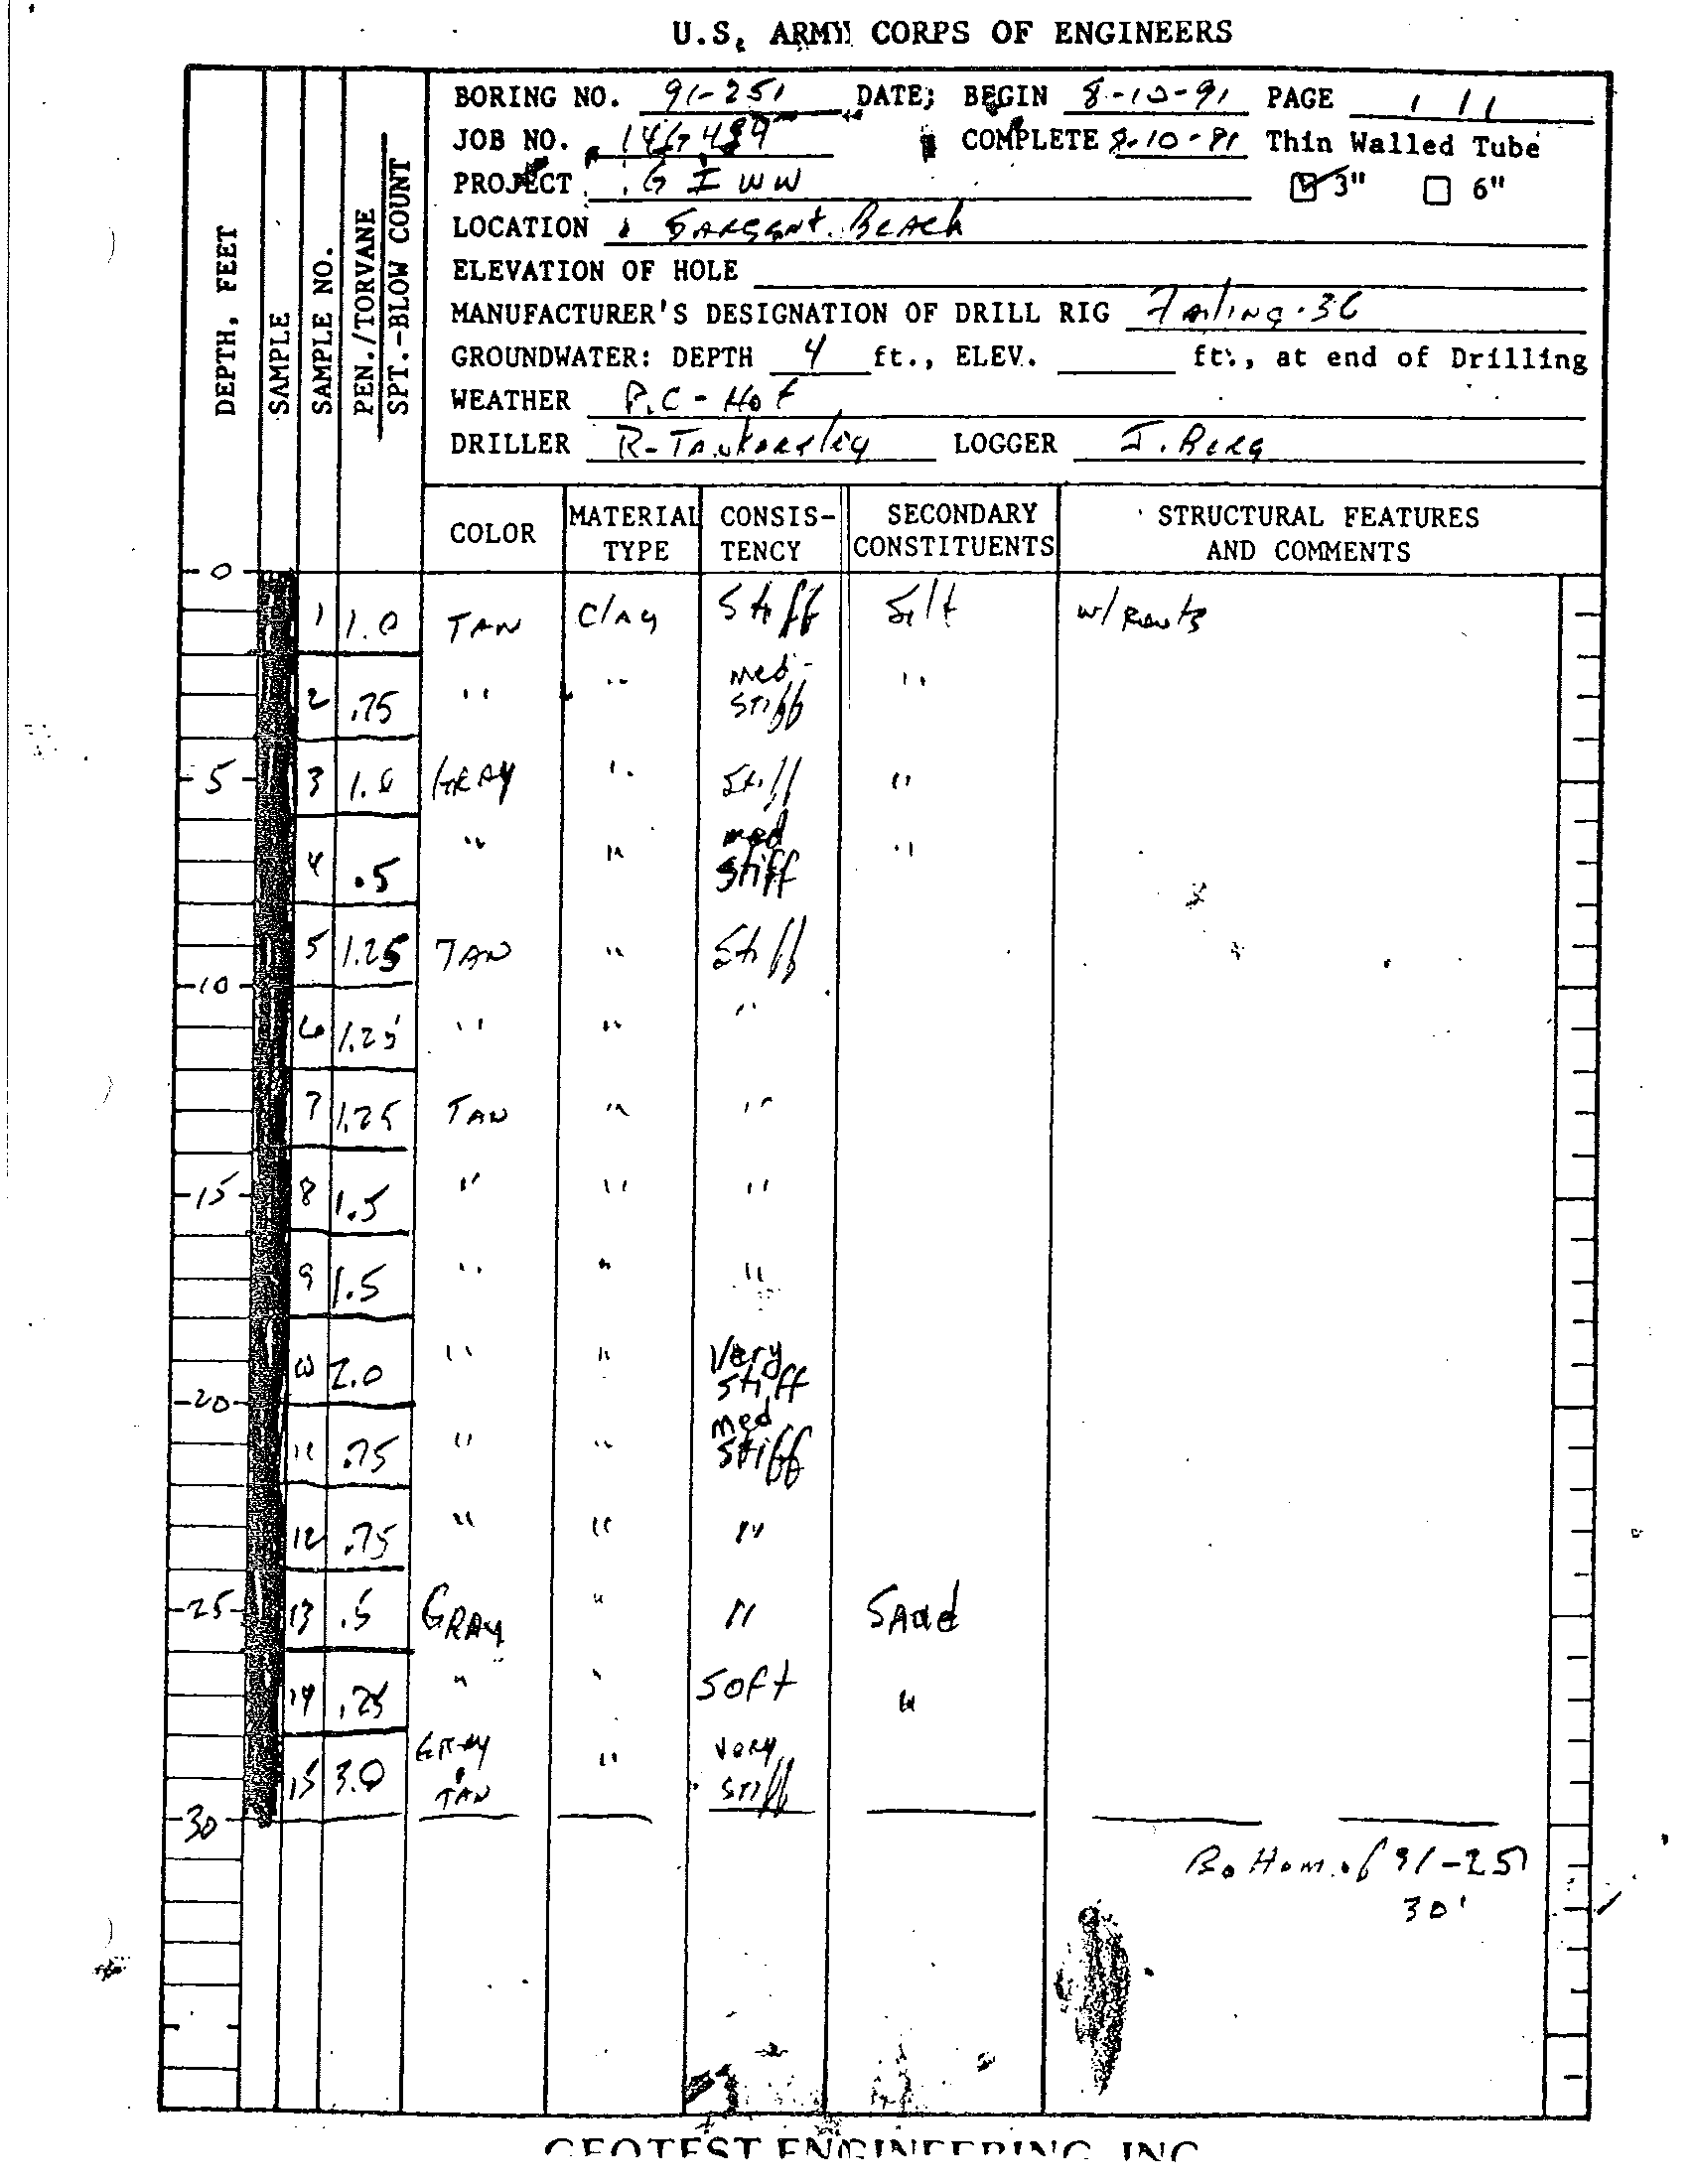 U.S. ARMY CORPS OF ENGINEERS
BORING NO. 91-251 DATE; BEGIN 8-10-91 PAGE 1 / 1
JOB NO. COMPLETE 8-10-91 Thin Walled Tube
PROJECT GIWW 3" 6"
LOCATION SARGENT BEACH
ELEVATION OF HOLE
MANUFACTURER'S DESIGNATION OF DRILL RIG Failing-36
GROUNDWATER: DEPTH 4 ft., ELEV. ft., at end of Drilling
WEATHER P.C - Hot
DRILLER R-Tankersley LOGGER J. Berg
DEPTH, FEET
SAMPLE
SAMPLE NO.
PEN./TORVANE
SPT.-BLOW COUNT
COLOR MATERIAL TYPE CONSIS-TENCY SECONDARY CONSTITUENTS STRUCTURAL FEATURES AND COMMENTS
0
1 1.0 TAN Clay Stiff Silt w/ Roots
2 .75 " " med-stiff "
5 3 1.0 GRAY " Stiff "
4 .5 " " med stiff "
5 1.25 TAN " Stiff
10
6 1.25 " " "
7 1.25 TAN " "
15 8 1.5 " " "
9 1.5 " " "
10 2.0 " " Very stiff
20
11 .75 " " med stiff
12 .75 " " "
25 13 .5 GRAY " " SAnd
14 .25 " " soft "
15 3.0 GRAY & TAN " very stiff
30
Bottom of 91-251
30'
GEOTEST ENGINEERING INC